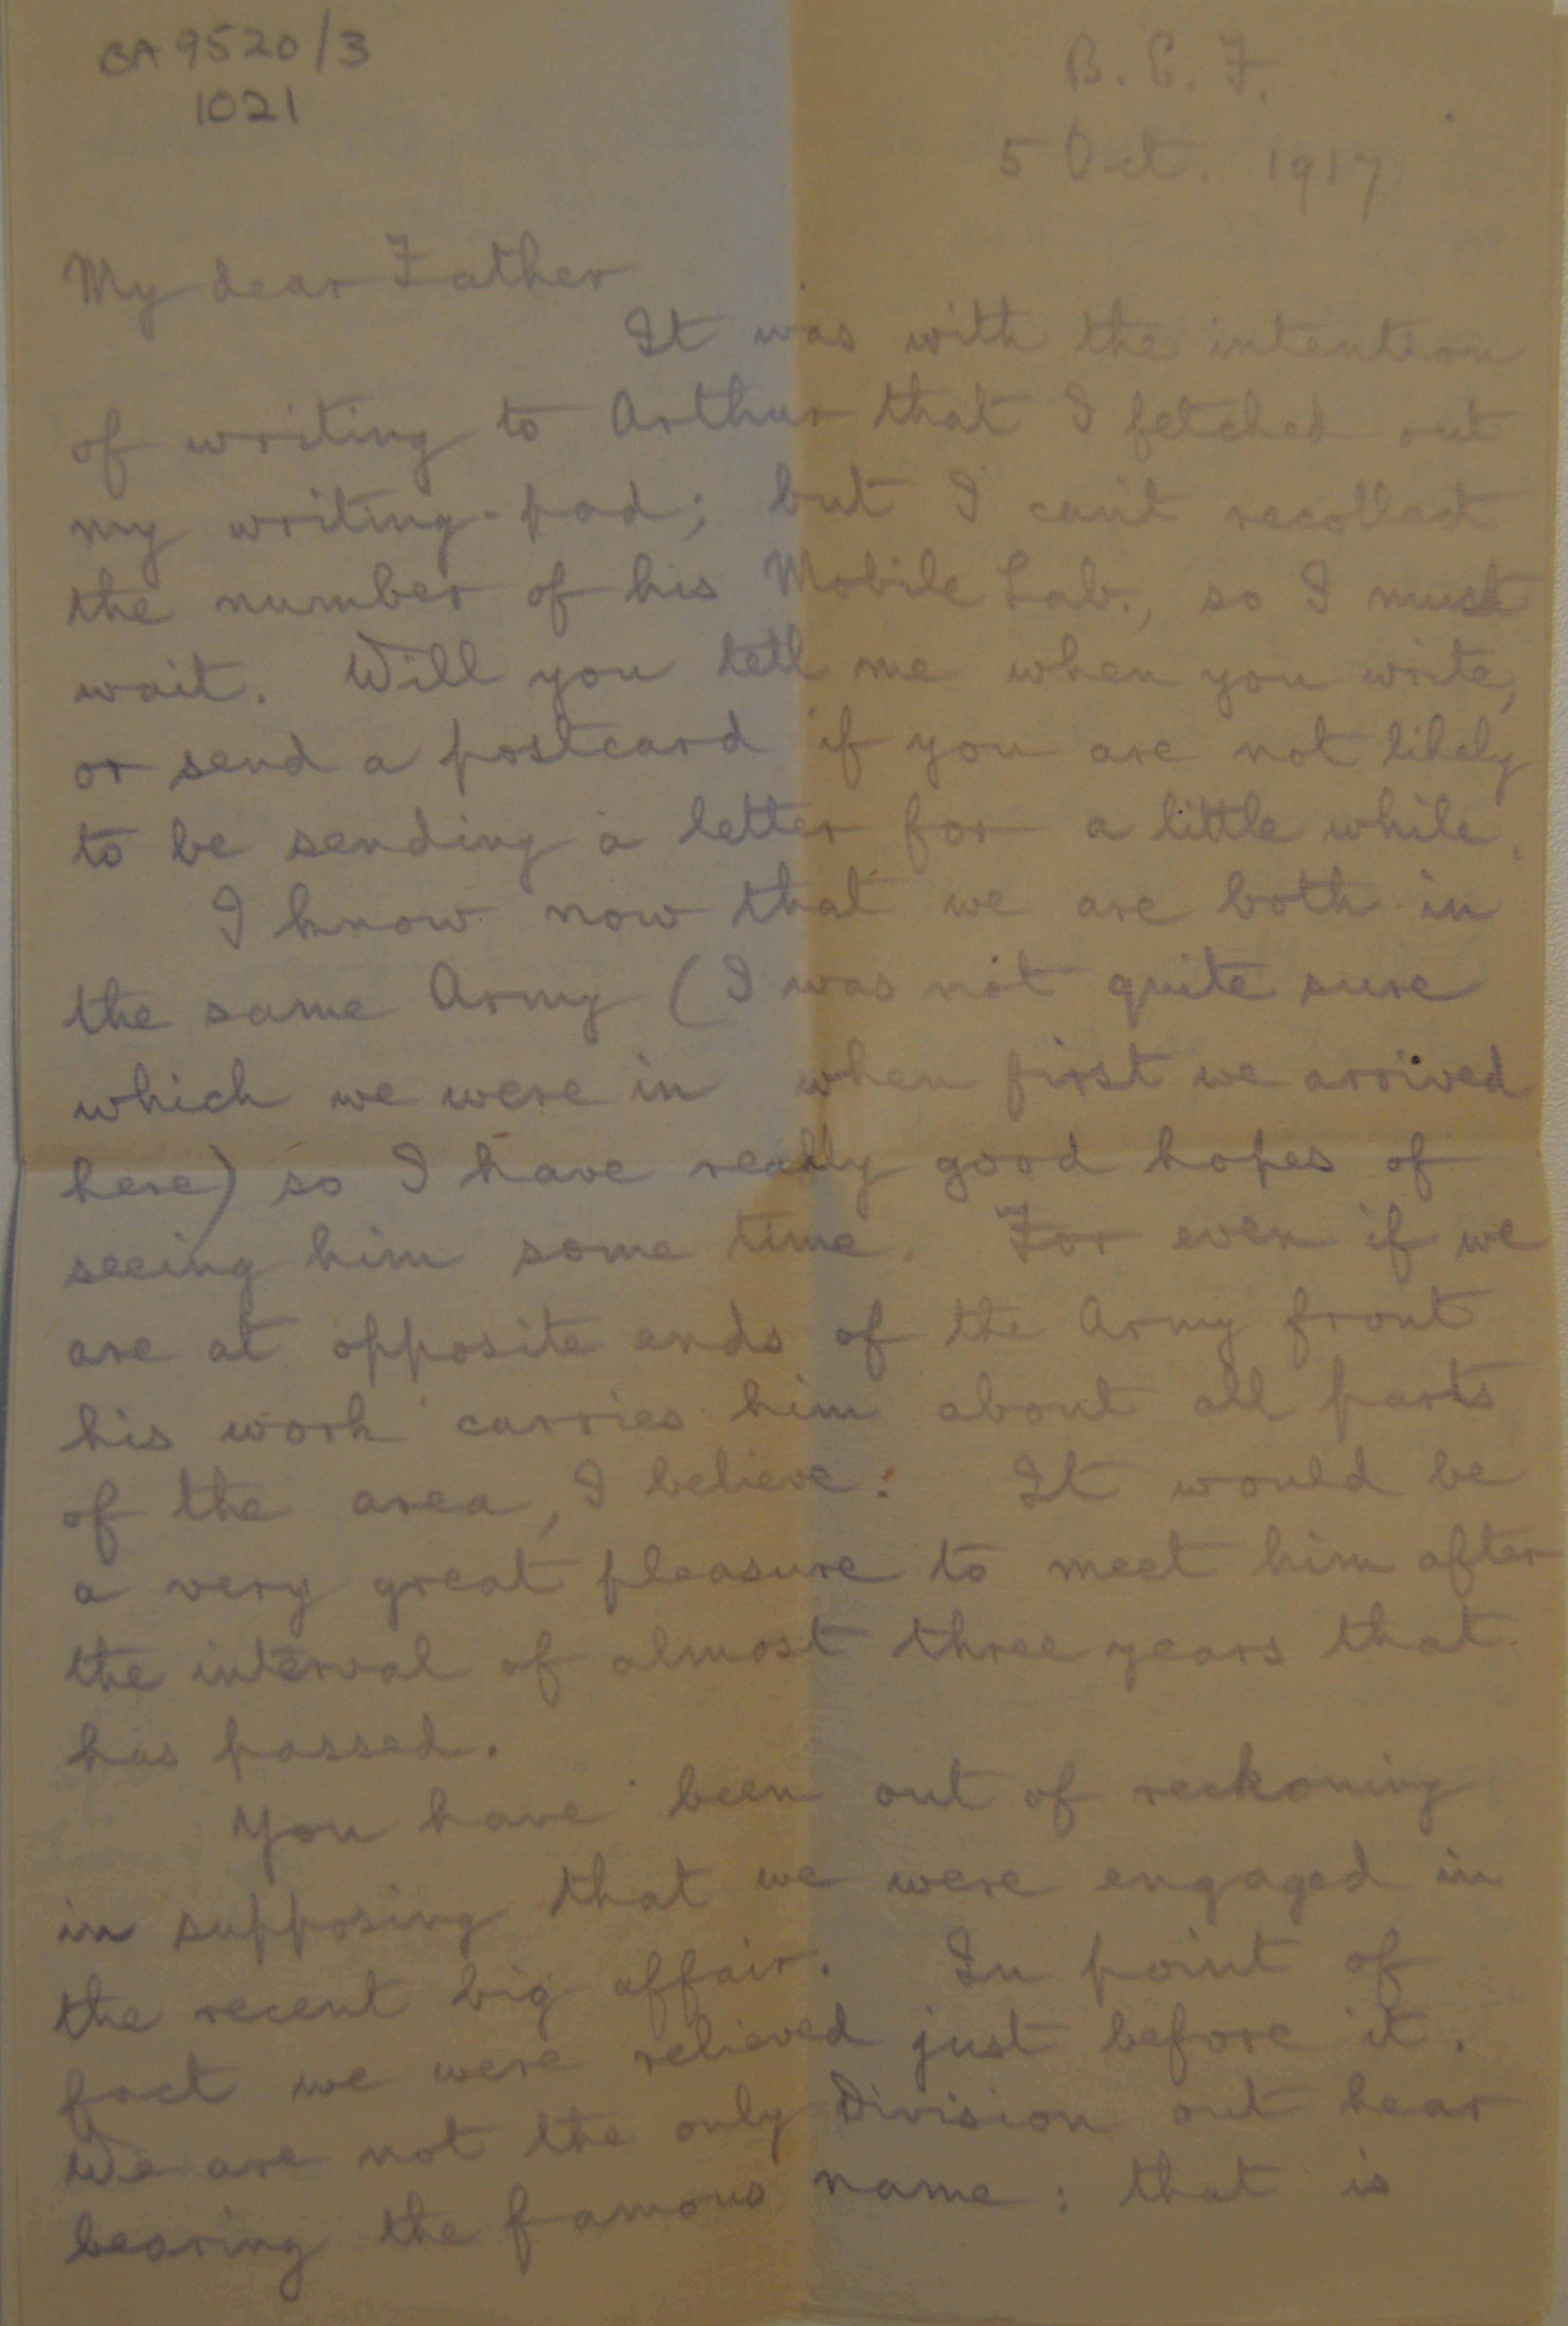 BA 9520/3
1021
B. E. F.
5 Oct. 1917
My dear Father
It was with the intention
of writing to Arthur that I fetched out
my writing-pad; but I can't recollect
the number of his Mobile Lab., so I must
wait. Will you tell me when you write,
or send a postcard if you are not likely
to be sending a letter for a little while.
I know now that we are both in
the same Army (I was not quite sure
which we were in when first we arrived
here) so I have really good hopes of
seeing him some time. For even if we
are at opposite ends of the Army front
his work carries him about all parts
of the area, I believe. It would be
a very great pleasure to meet him after
the interval of almost three years that
has passed.
You have been out of reckoning
in supposing that we were engaged in
the recent big affair. In point of
fact we were relieved just before it.
We are not the only Division out hear
bearing the famous name: that is